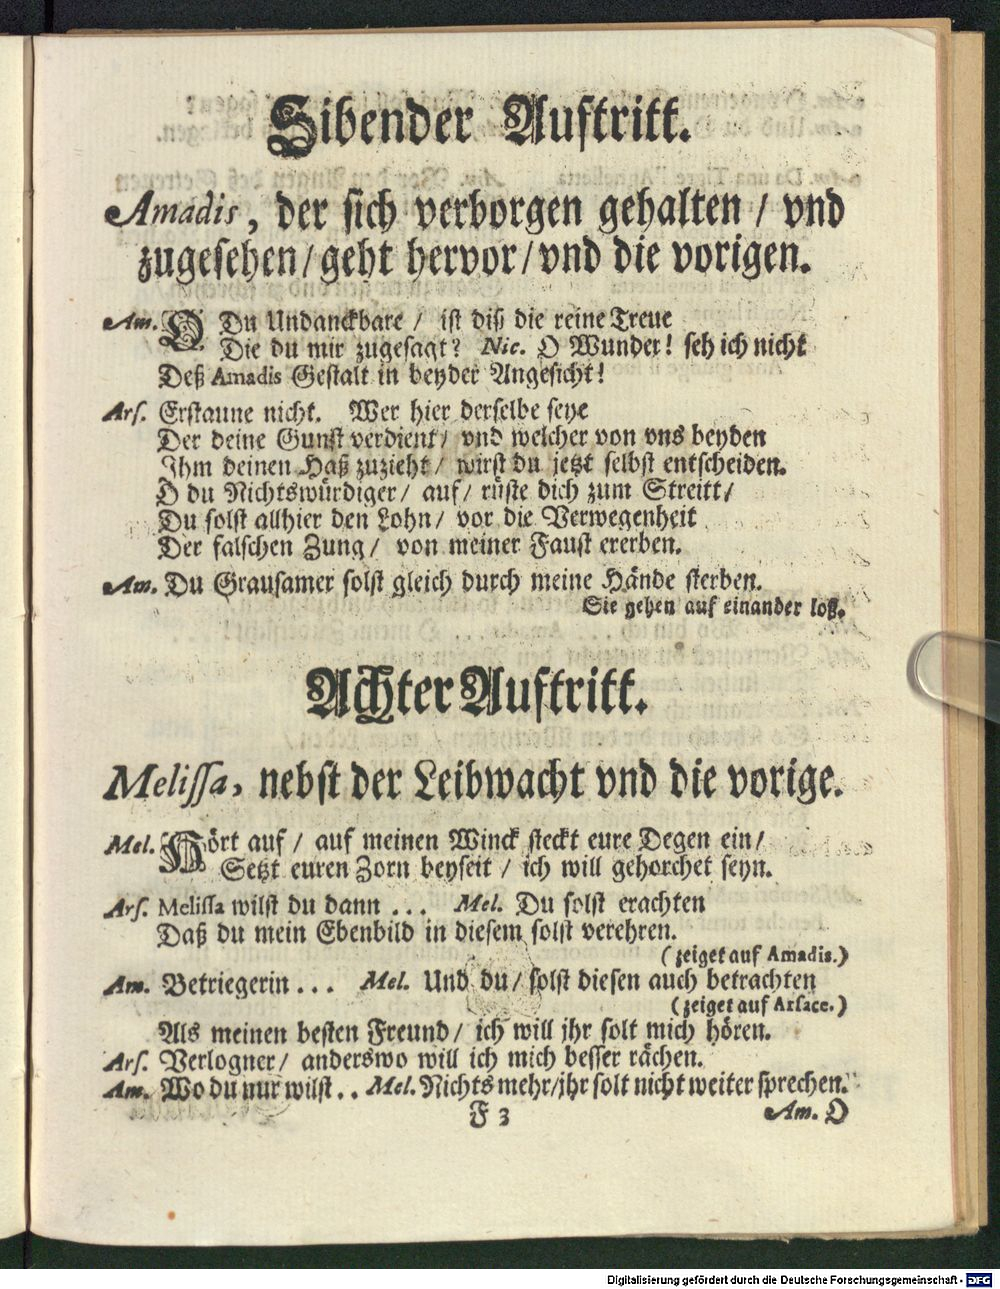 Sibender Auftritt.
Amadis, der sich verborgen gehalten / vnd
zugesehen / geht hervor / vnd die vorigen.
Am. O Du Undanckbare / ist diß die reine Treue
Die du mir zugesagt? Nic. O Wunder! seh ich nicht
Deß Amadis Gestalt in beyder Angesicht!
Ars. Erstaune nicht. Wer hier derselbe seye
Der deine Gunst verdient / vnd welcher von vns beyden
Ihm deinen Haß zuzieht / wirst du jetzt selbst entscheiden.
O du Nichtswürdiger / auf / rüste dich zum Streitt /
Du solst allhier den Lohn / vor die Verwegenheit
Der falschen Zung / von meiner Faust ererben.
Am. Du Grausamer solst gleich durch meine Hände sterben.
Sie gehen auf einander loß.
Achter Auftritt.
Melissa, nebst der Leibwacht vnd die vorige.
Mel. Hört auf / auf meinen Winck steckt eure Degen ein /
Setzt euren Zorn beyseit / ich will gehorchet seyn.
Ars. Melissa wilst du dann ... Mel. Du solst erachten
Daß du mein Ebenbild in diesem solst verehren.
(zeiget auf Amadis.)
Am. Betriegerin ... Mel. Und du / solst diesen auch betrachten
(zeiget auf Arsace.)
Als meinen besten Freund / ich will jhr solt mich hören.
Ars. Verlogner / anderswo will ich mich besser rächen.
Am. Wo du nur wilst .. Mel. Nichts mehr / jhr solt nicht weiter sprechen.
F 3
Am. O
Digitalisierung gefördert durch die Deutsche Forschungsgemeinschaft - DFG